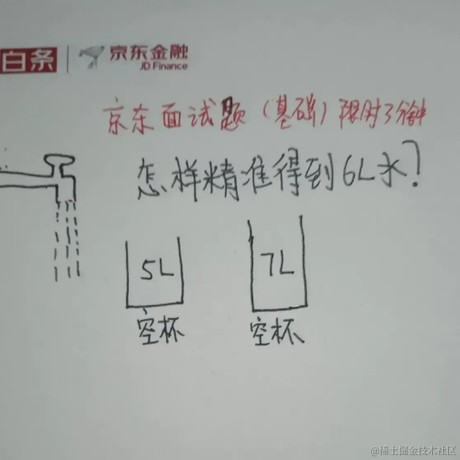 白条 京东金融
JD Finance
京东面试题（基础）限时3分钟
怎样精准得到6L水？
5L 7L
空杯 空杯
@稀土掘金技术社区